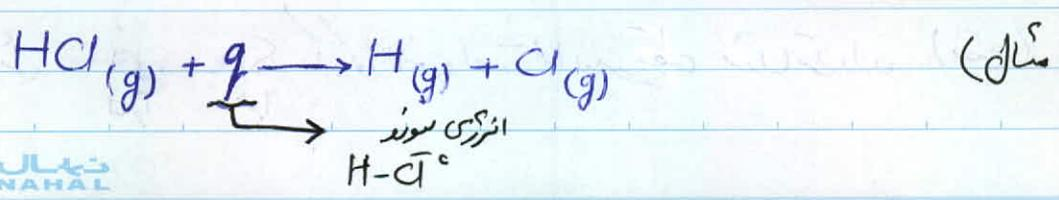 مثال)
HCl(g) + q → H(g) + Cl(g)
انرژی پیوند
H-Cl
نهال
NAHAL